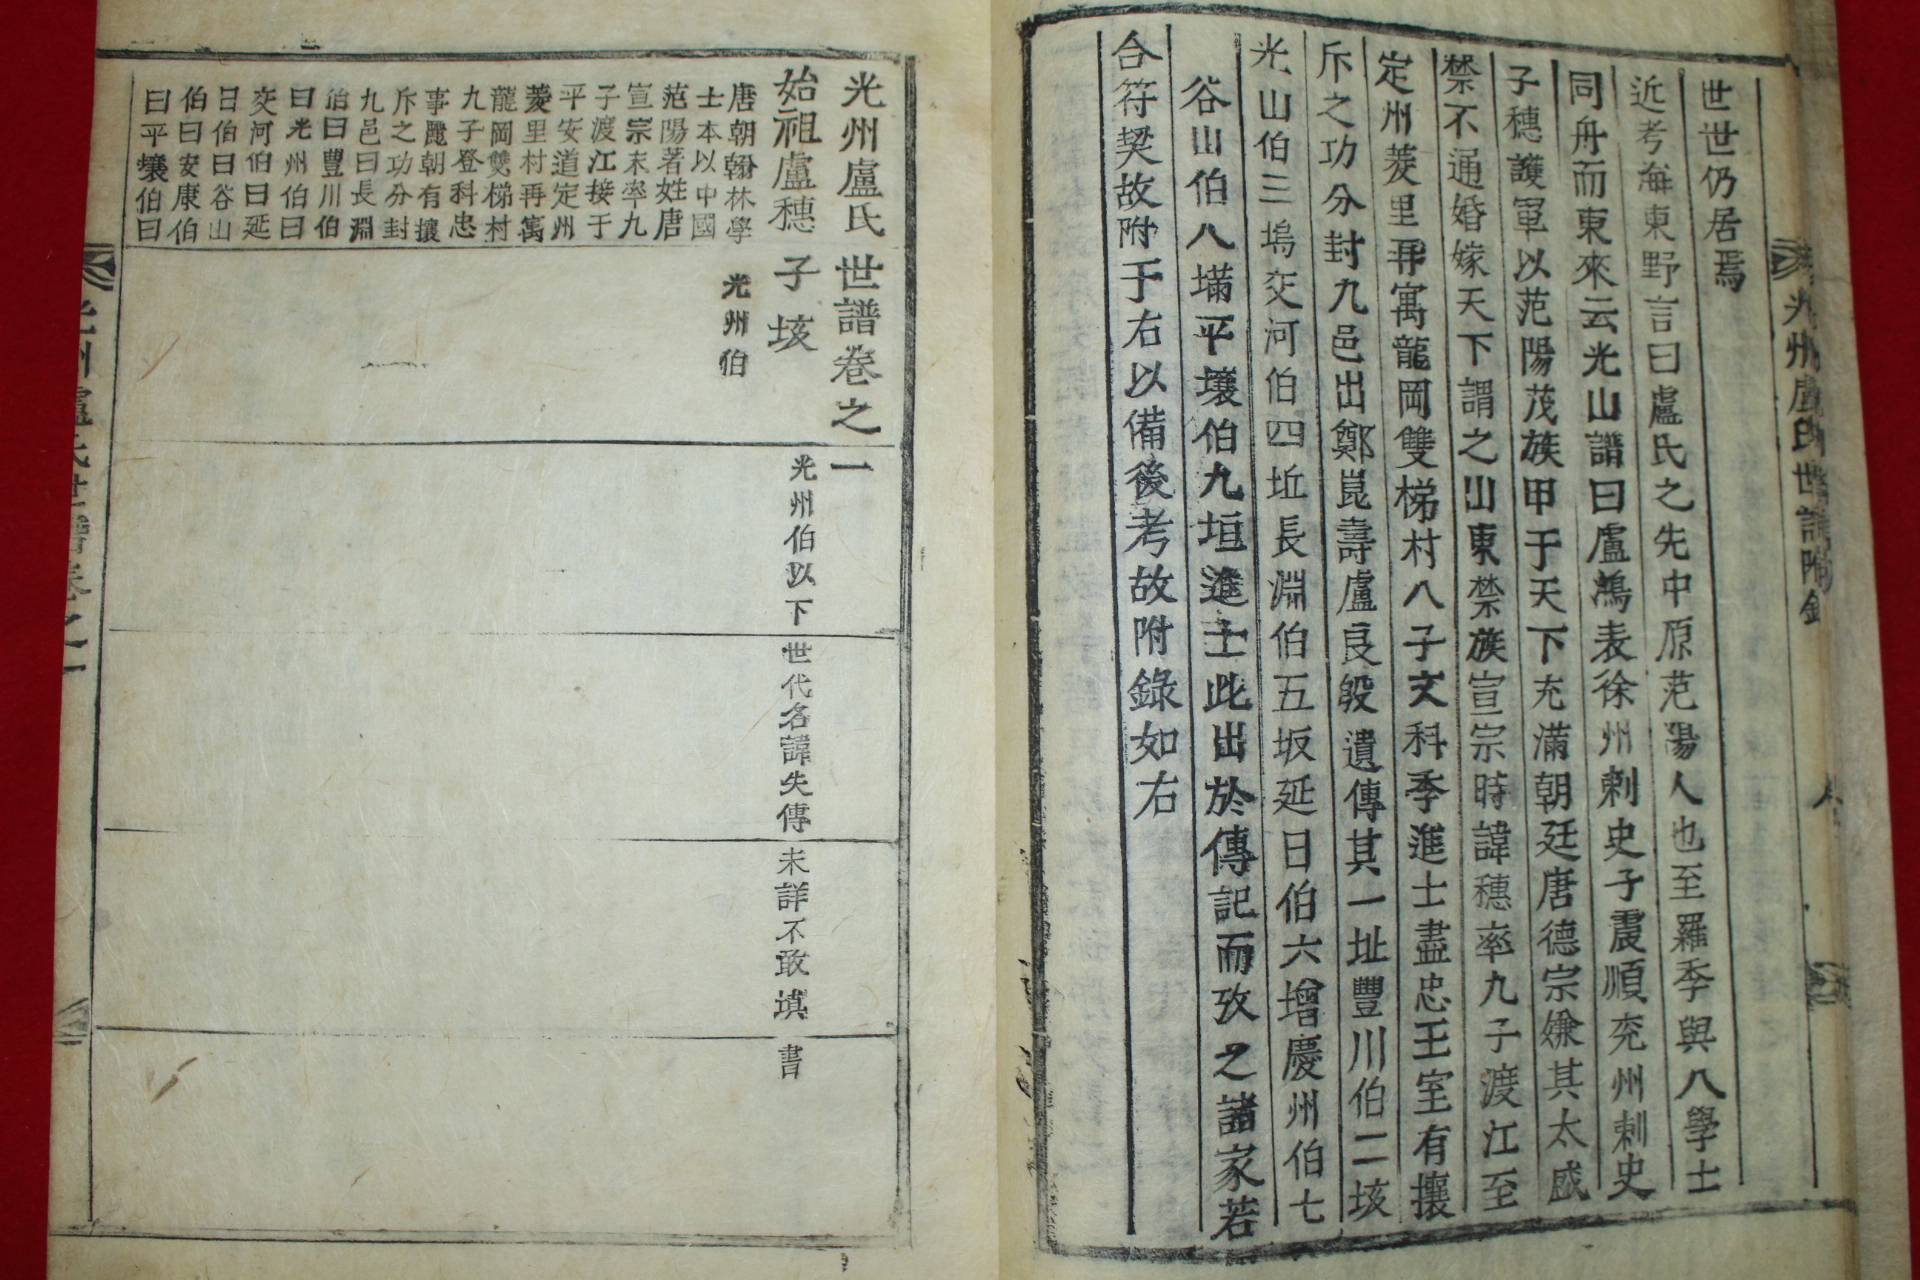 世世仍居焉
近考海東野言曰盧氏之先中原范陽人也至羅季與八學士
同舟而東來云光山譜曰盧鴻表徐州刺史子震順兖州刺史
子穗護軍以范陽茂族甲于天下充滿朝廷唐德宗嫌其太盛
禁不通婚嫁天下謂之山東禁族宣宗時諱穗率九子渡江至
定州菱里再寓龍岡雙梯村八子文科季進士盡忠王室有攘
斥之功分封九邑出鄭崑壽盧良㲄遺傳其一址豐川伯二垓
光山伯三塢交河伯四坵長淵伯五坂延日伯六增慶州伯七
谷山伯八墧平壤伯九垣進士此出於傳記而攷之諸家若
合符契故附于右以備後考故附錄如右
光州盧氏世譜附錄
光州盧氏世譜卷之一
始祖盧穗
唐朝翰林學
士本以中國
范陽著姓唐
宣宗末率九
子渡江接于
平安道定州
菱里村再寓
龍岡雙梯村
九子登科忠
事麗朝有攘
斥之功分封
九邑曰長淵
伯曰豐川伯
曰光州伯曰
交河伯曰延
日伯曰谷山
伯曰安康伯
曰平壤伯曰
子垓
光州伯
光州伯以下
世代名諱失傳
未詳不敢塡
書
光州盧氏世譜卷之一